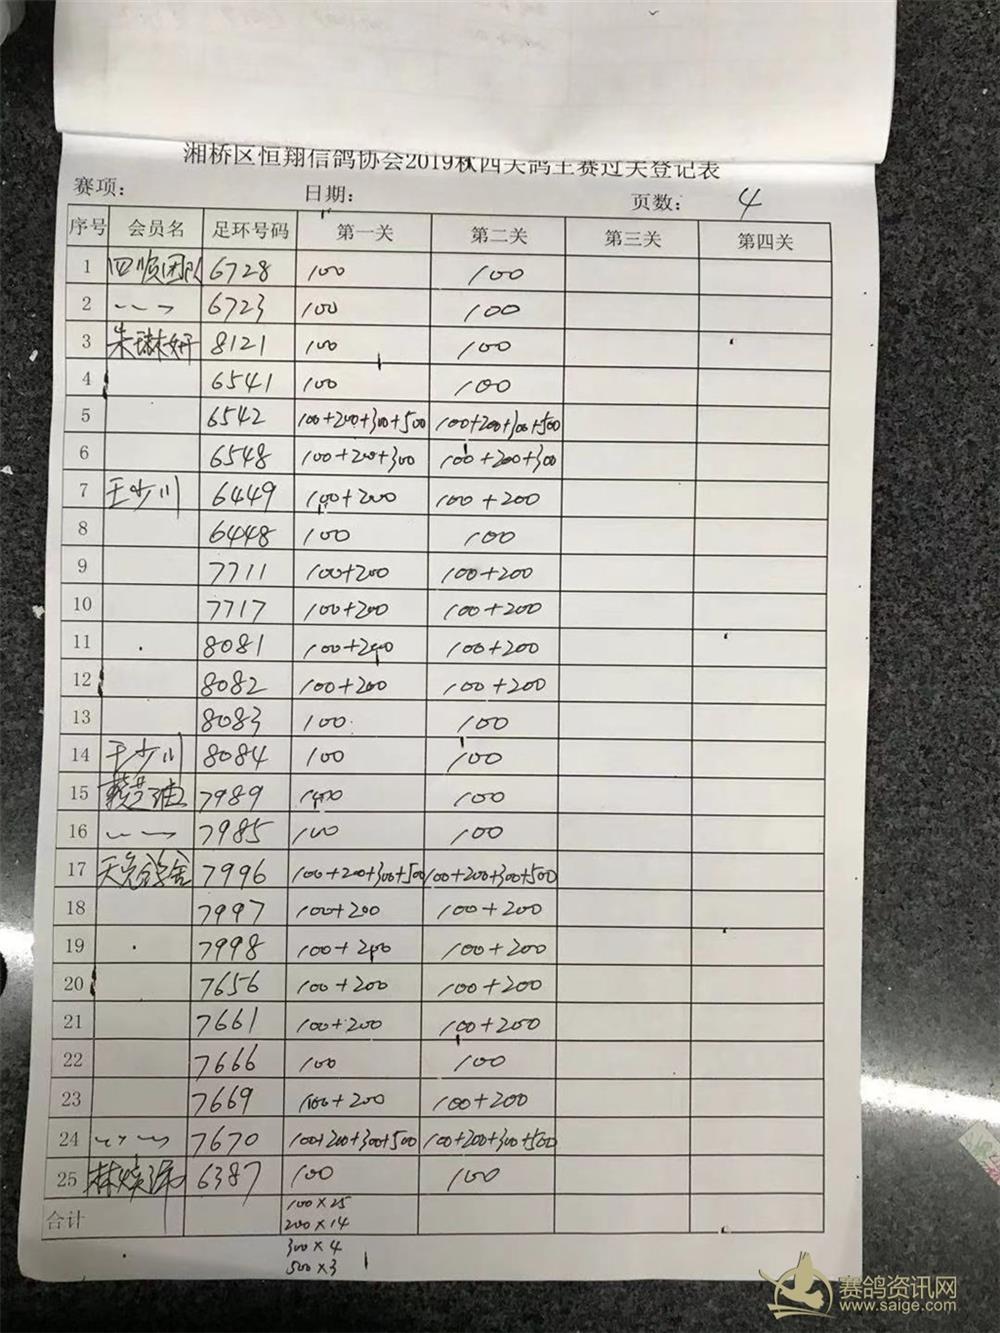 湘桥区恒翔信鸽协会2019秋四关鸽王赛过关登记表
赛项: 日期: 页数: 4
序号 会员名 足环号码 第一关 第二关 第三关 第四关
1 四顺团队 6728 100 100
2 〃 6723 100 100
3 朱琳妍 8121 100 100
4 6541 100 100
5 6542 100+200+300+500 100+200+300+500
6 6548 100+200+300 100+200+300
7 王少川 6449 100+200 100+200
8 6448 100 100
9 7711 100+200 100+200
10 7717 100+200 100+200
11 8081 100+200 100+200
12 8082 100+200 100+200
13 8083 100 100
14 王少川 8084 100 100
15 7989 100 100
16 〃 7985 100 100
17 7996 100+200+300+500 100+200+300+500
18 7997 100+200 100+200
19 7998 100+200 100+200
20 7656 100+200 100+200
21 7661 100+200 100+200
22 7666 100 100
23 7669 100+200 100+200
24 〃 7670 100+200+300+500 100+200+300+500
25 6387 100 100
合计 100×25
200×14
300×4
500×3
赛鸽资讯网
www.saige.com